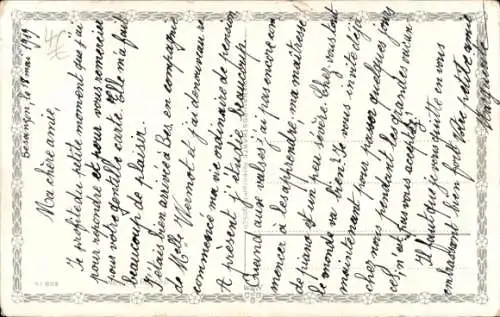 Besançon, le 1 mai 1919
Ma chère amie,
Je profite du petite moment que j'ai
pour répondre et pour vous remercier
pour votre gentille carte. Elle m'a fait
beaucoup de plaisir.
J'étais bien arrivée à Bes. en compagnie
de Melle Wermot et j'ai de nouveau re
commencé ma vie ordinaire de pension.
A présent j'étudie beaucoup.
Quand aux valses j'ai pas encore com
mencer à les apprendre, ma maîtresse
de piano est un peu sévère. Chez vous tout
le monde va bien? Je vous invite déjà
maintenant pour passer quelques jours
chez nous pendant les grandes vacances
n'est pas vous acceptez?
Il faut que je vous quitte en vous
embrassant bien fort. Votre petite amie